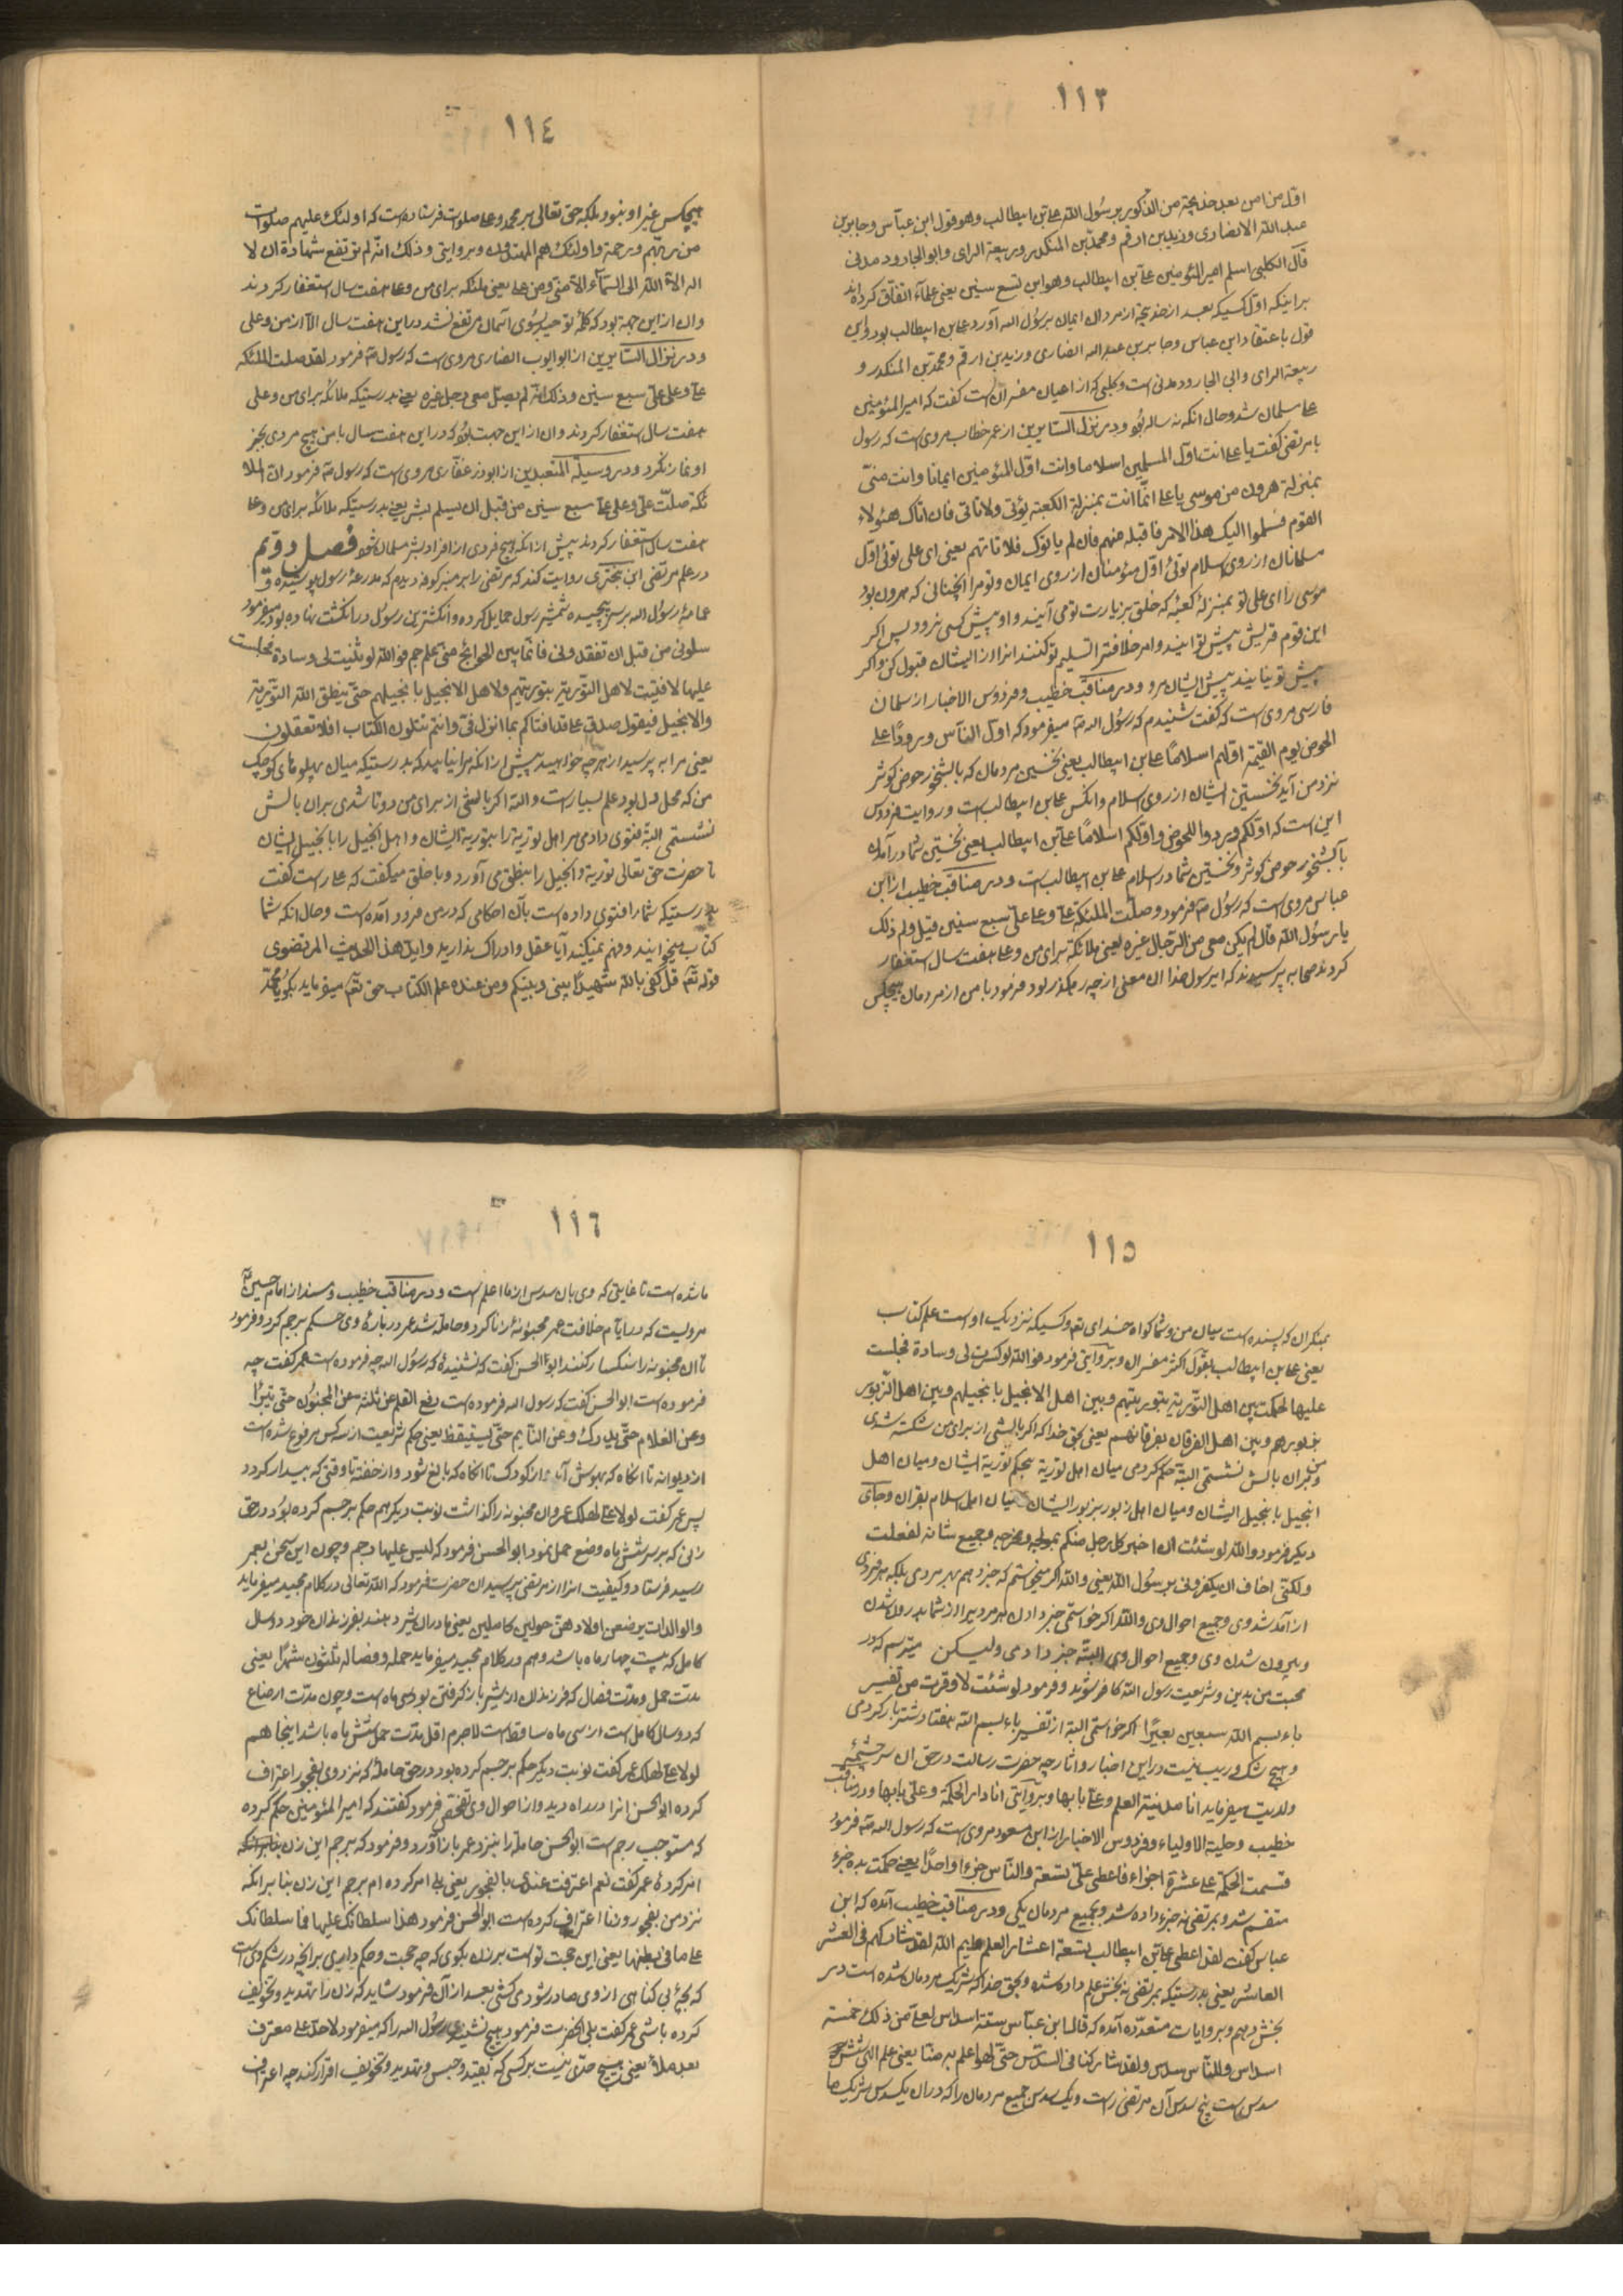 ١١٣
اوّل من امن بعد خدیجة من الذکور برسول الله علی بن ابیطالب وهو قول ابن عبّاس وجابر بن
عبد الله الانصاری وزید بن ارقم ومحمّد بن المنکدر وربیعة الرای وابو الجارود مدنی
قال الکلبی اسلم امیر المؤمنین علی بن ابیطالب وهو ابن تسع سنین یعنی علمآء اتفاق کرده اند
براینکه اوّل کسیکه بعد از خدیجه از مردان ایمان برسول الله آورد علی بن ابیطالب بود واین
قول باعتقاد ابن عباس وجابر بن عبد الله انصاری وزید بن ارقم ومحمّد بن المنکدر و
ربیعة الرای وابی الجارود مدنی است وکلبی که از اعیان مفسران است گفت که امیر المؤمنین
علی مسلمان شد وحال آنکه نه ساله بود ودر نزل السّایرین از عمر خطاب مرویست که رسول
بامرتضی گفت یا علی انت اوّل المسلمین اسلاما وانت اوّل المؤمنین ایمانا وانت منّی
بمنزلة هرون من موسی یا علی انّما انت بمنزلة الکعبة یؤتی ولا تاتی فان اتاک هؤلاء
القوم فسلموا الیک هذا الامر فاقبله منهم فان لم یاتوک فلا تاتهم یعنی ای علی توئی اوّل
مسلمانان از روی اسلام توئی اوّل مؤمنان از روی ایمان وتو مرا آنچنانی که هرون بود
موسی را ای علی تو بمنزلهٔ کعبهٔ که خلق بزیارت تو می آیند و او پیش کسی نرود پس اگر
این قوم قریش پیش تو آیند وامر خلافترا تسلیم تو کنند انرا از ایشان قبول کن واگر
پیش تو نیایند پیش ایشان مرو ودر مناقب خطیب وفردوس الاخبار از سلمان
فارسی مرویست که گفت شنیدم که رسول الله ص میفرمود که اوّل النّاس ورودًا علی
الحوض یوم القیمة اوّلهم اسلامًا علی بن ابیطالب یعنی نخستین مردمان که بآبشخور حوض کوثر
نزد من آید نخستین ایشان از روی اسلام وانکس علی بن ابیطالبست وروایت فردوس
این است که اوّلکم ورودا للحوض واوّلکم اسلامًا علی بن ابیطالب یعنی نخستین شما در آمدن
بآبشخور حوض کوثر ونخستین شما در اسلام علی بن ابیطالبست ودر مناقب خطیب از ابن
عباس مرویست که رسول ص فرمود وصلّت الملئکة علیّ وعلی علی سبع سنین قیل ولم ذلک
یا رسول الله قال لم یکن معی من الرّجال غیره یعنی ملائکة برای من وعلی هفت سال استغفار
کردند صحابه پرسیدند که ای رسول خدا ان معنی از چه رهگذر بود فرمود با من از مردمان هیچکس
١١٤
هیچکس غیر او نبود بلکه حق تعالی بر محمد وعلی صلوات فرستاده است که اولئک علیهم صلوات
من ربّهم ورحمة واولئک هم المهتدون وبروایتی وذلک انّه لم ترتفع شهادة ان لا
اله الاّ الله الی السّماء الاّ منّی ومن علی یعنی ملئکه برای من وعلی هفت سال استغفار کردند
وان از این جهة بود که کلمهٔ توحید بسوی آسمان مرتفع نشد در این هفت سال الا از من وعلی
ودر نزال السّایرین از ابو ایوب انصاری مرویست که رسول ص فرمود لقد صلت الملئکه
علیّ وعلی علیّ سبع سنین وذلک انّه لم یصلّ معی رجل غیره یعنی بدرستیکه ملائکه برای من وعلی
هفت سال استغفار کردند وان از این جهت بود که در این هفت سال با من هیچ مردی بجز
او نماز نکرد ودر وسیلة المتعبدین از ابوذر غفّاری مرویست که رسول ص فرمود انّ الملا
ئکة صلّت علیّ وعلی علیّ سبع سنین من قبل ان یسلم بشر یعنی بدرستیکه ملائکه برای من وعلی
هفت سال استغفار کردند پیش از انکه هیچ فردی از افراد بشر مسلمان شود فصل دویم
در علم مرتضی ابن بختری روایت کند که مرتضی را بر منبر کوفه دیدم که مدرعهٔ رسول پوشیده و
عمامهٔ رسول الله بر سر پیچیده شمشیر رسول حمایل کرده وانکشترین رسول در انکشت نهاده بود میفرمود
سلونی من قبل ان تفقدونی فانّما بین الجوانح منّی علم جم فوالله لو ثنیت لی وسادة فجلست
علیها لافتیت لاهل التّوریة بتوریتهم ولاهل الانجیل بانجیلهم حتّی ینطق الله التّوریة
والانجیل فیقول صدق علی قد افتاکم بما انزل فیّ وانتم تتلون الکتاب افلا تعقلون
یعنی مرا به پرسید از هرچه خواهید پیش از انکه مرا نیابید که بدرستیکه میان پهلوهای کوچک
من که محل دل بود علم بسیار است والله اگر بالشی از برای من دوتا شدی بران بالش
نشستمی البتة فتوی دادمی مر اهل توریة را بتوریة ایشان واهل انجیل را بانجیل ایشان
تا حضرت حق تعالی توریة وانجیل را بنطق می آورد وبا خلق میگفت که علی راست گفت
بدرستیکه شما را فتوی داده است بآن احکامی که در من فرود آمده است وحال انکه شما
کتاب میخوانید وفهم نمیکنید آیا عقل وادراک ندارید واین هذا الحدیث المرتضوی
قوله تعم قل کفی بالله شهیدًا بینی وبینکم ومن عنده علم الکتاب حق تعم میفرماید بکو یا محمّد
١١٥
بمنکران که پسنده است میان من وشما کواه خدای تعم وکسیکه نزدیک اوست علم کتاب
یعنی علی بن ابیطالب بقول اکثر مفسران وبروآیتی فرمود فوالله لو کسرت لی وسادة فجلست
علیها لحکمت بین اهل التّوریة بتوریتهم وبین اهل الانجیل بانجیلهم وبین اهل الزّبور
بزبورهم وبین اهل الفرقان بفرقانهم یعنی بحق خدا که اگر بالشی از برای من شکسته شدی
وبران بالش نشستمی البتّه حکم کردمی میان اهل توریة بحکم توریة ایشان ومیان اهل
انجیل بانجیل ایشان ومیان اهل زبور بزبور ایشان میان اهل اسلام بقران وجای
دیکر فرمود والله لو شئت ان اخبر کل رجل منکم بمولجه ومخرجه وجمیع شانه لفعلت
ولکنّی اخاف ان یکفرونی برسول الله یعنی والله اگر میخواستم که خبر دهم بهر مردی بلکه هر فردی
از آمد شد وی وجمیع احوال وی والله اکر خواستمی خبر دادن هر مردیرا از شما بدرون شدن
وبیرون شدن وی وجمیع احوال وی البتّه خبر دادمی ولیکن میترسم که در
محبت من بدین وشریعت رسول الله کافر شوند وفرمود لو شئت لاوقرت من تفسیر
باء بسم الله سبعین بعیرًا اکر خواستمی البتة از تفسیر باء بسم الله هفتاد شتر بار کردمی
وهیچ شک وریب نیست در این اخبار واثار چه حضرت رسالت در حق ان سرچشمهٔ
ولایت میفرماید انا مدینة العلم وعلیّ بابها وبروآیتی انا دار الحکمة وعلیّ بابها ودر مناقب
خطیب وحلیة الاولیاء وفردوس الاخبار از ابن مسعود مرویست که رسول الله ص فرمود
قسمت الحکمة علی عشرة اجزاء فاعطی علیّ تسعة والنّاس جزءا واحدًا یعنی حکمت بده جزء
منقسم شد وبمرتضی نه جزء داده شد وبجمیع مردمان یکی ودر مناقب خطیب آمده که ابن
عباس گفت لقد اعطی علی بن ابیطالب تسعة اعشار العلم وایم الله لقد شارکهم فی العشر
العاشر یعنی بدرستیکه بمرتضی نه بخش علم داده شده وبحق خدا که شریک مردمان شده است در
بخش دهم وبروایات متعدّده آمده که قال ابن عبّاس ستة اسداس لعلی من ذلک خمسة
اسداس وللنّاس سدس ولقد شارکنا فی السّدس حتّی لهو اعلم به منّا یعنی علم الهی شش
سدس است پنج سدس آن مرتضی راست ویک سدس جمیع مردمان را که در ان یکسدس شریک ما
١١٦
ما شده است تا غایتی که وی بان سدس از ما اعلم است ودر مناقب خطیب ومسند از امام حسین
مرویست که در ایّام خلافت عمر مجنونهٔ زنا کرد وحامله شد عمر دربارهٔ وی حکم برجم کرد وفرمود
تا ان مجنونه را سنکسار کنند ابو الحسن گفت که نشنیدهٔ که رسول الله چه فرموده است عمر گفت چه
فرموده است ابو الحسن گفت که رسول الله فرموده است رفع القلم عن ثلثة عن المجنون حتّی یبرأ
وعن الغلام حتّی یدرک وعن النّایم حتّی یستیقظ یعنی حکم شریعت از سه کس مرفوع شده است
از دیوانه تا انکاه که بهوش آید واز کودک تا انکاه که بالغ شود واز خفته تا وقتی که بیدار کردد
پس عمر گفت لولا علی لهلک عمر وان مجنونه را گذاشت نوبت دیکر هم حکم برجم کرده بود در حق
زنی که بر سر شش ماه وضع حمل نمود ابو الحسن فرمود که لیس علیها رجم وچون این سخن بعمر
رسید فرستاد وکیفیت انرا از مرتضی پرسید ان حضرت فرمود که الله تعالی در کلام مجید میفرماید
والوالدات یرضعن اولادهنّ حولین کاملین یعنی مادران شیر دهند بفرزندان خود دو سال
کامل که بیست چهار ماه باشد وهم در کلام مجید میفرماید حمله وفصاله ثلثون شهرًا یعنی
مدّت حمل ومدّت فصال که فرزندان از شیر باز گرفتی بود سی ماه است وچون مدّت ارضاع
که دو سال کامل است از سی ماه ساقط است لاجرم اقل مدّت حمل شش ماه باشد اینجا هم
لولا علی لهلک عمر گفت نوبت دیکر حکم برجم کرده بود در حق حاملهٔ که نزد وی بفجور اعتراف
کرده ابو الحسن انرا در راه دید واز احوال وی تفحّص فرمود گفتند که امیر المؤمنین حکم کرده
که مستوجب رجم است ابو الحسن حامله را بنزد عمر باز آورد وفرمود که برجم این زن
امر کردهٔ عمر گفت نعم اعترفت عندی بالفجور یعنی بلی امر کرده ام برجم این زن بنا برانکه
نزد من بفجور وزنا اعتراف کرده است ابو الحسن فرمود هذا سلطانک علیها فما سلطانک
علی ما فی بطنها یعنی این حجت تو است بر زن بکوی که چه حجت وحکم داری بر انچه در شکم وی است
که بچهٔ بی گناهی از وی صادر نشود می کشی بعد از آن فرمود شاید که زن را تهدید وتخویف
کرده باشی عمر گفت بلی انحضرت فرمود هیچ نشنیدی رسول الله را که میفرمود لا حدّ علی معترف
بعد بلاء یعنی هیچ حدّی نیست بر کسی که بقید وحبس وتهدید وتخویف اقرار کند چه اعتراف